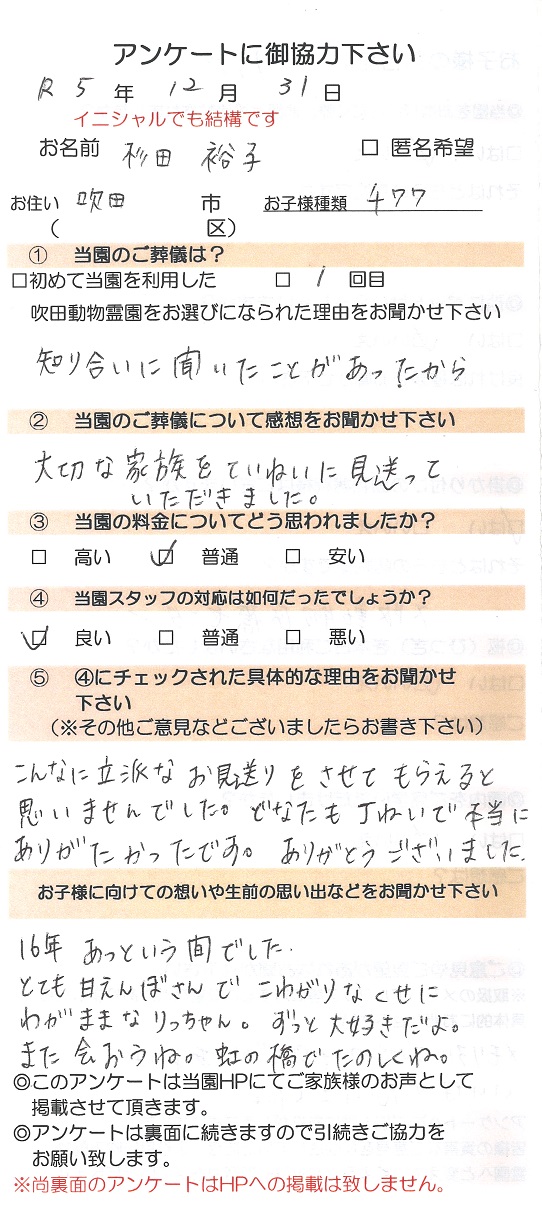 アンケートに御協力下さい
R 5 年 12 月 31 日
イニシャルでも結構です
お名前 杉田 裕子 □ 匿名希望
お住い 吹田 市 お子様種類 チワワ
( 区)
① 当園のご葬儀は?
□初めて当園を利用した □ 1 回目
吹田動物霊園をお選びになられた理由をお聞かせ下さい
知り合いに聞いたことがあったから
② 当園のご葬儀について感想をお聞かせ下さい
大切な家族をていねいに見送って
いただきました。
③ 当園の料金についてどう思われましたか?
□ 高い ☑ 普通 □ 安い
④ 当園スタッフの対応は如何だったでしょうか?
☑ 良い □ 普通 □ 悪い
⑤ ④にチェックされた具体的な理由をお聞かせ
下さい
(※その他ご意見などございましたらお書き下さい)
こんなに立派なお見送りをさせてもらえると
思いませんでした。どなたも丁ねいで本当に
ありがたかったです。ありがとうございました.
お子様に向けての想いや生前の思い出などをお聞かせ下さい
16年 あっという間でした.
とても甘えんぼさんで こわがりなくせに
わがままなりっちゃん。ずっと大好きだよ。
また会おうね。虹の橋でたのしくね。
◎このアンケートは当園HPにてご家族様のお声として
掲載させて頂きます。
◎アンケートは裏面に続きますので引続きご協力を
お願い致します。
※尚裏面のアンケートはHPへの掲載は致しません。